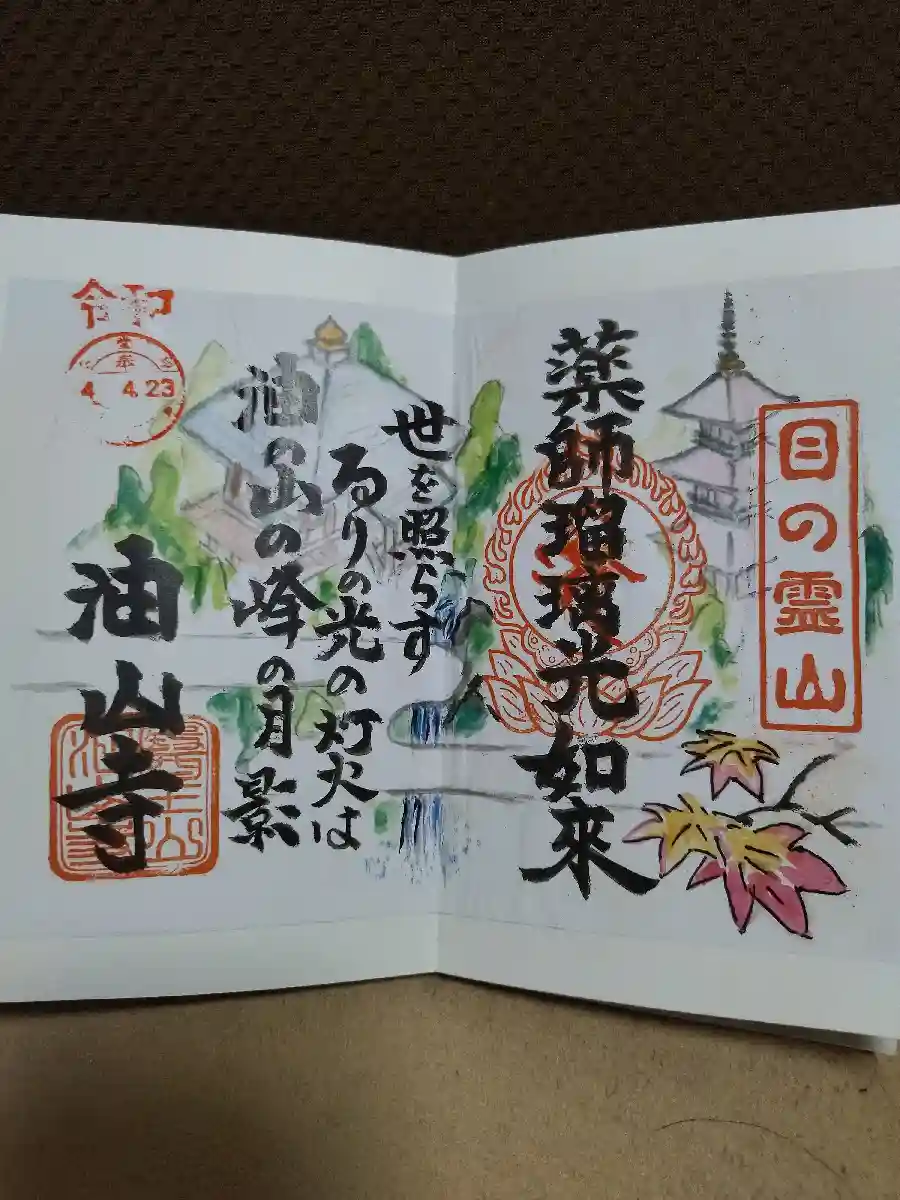 目の霊山
薬師瑠璃光如來
世を照らす
るりの光の灯火は
油山の峰の月影
油山寺
令和
4.4.23